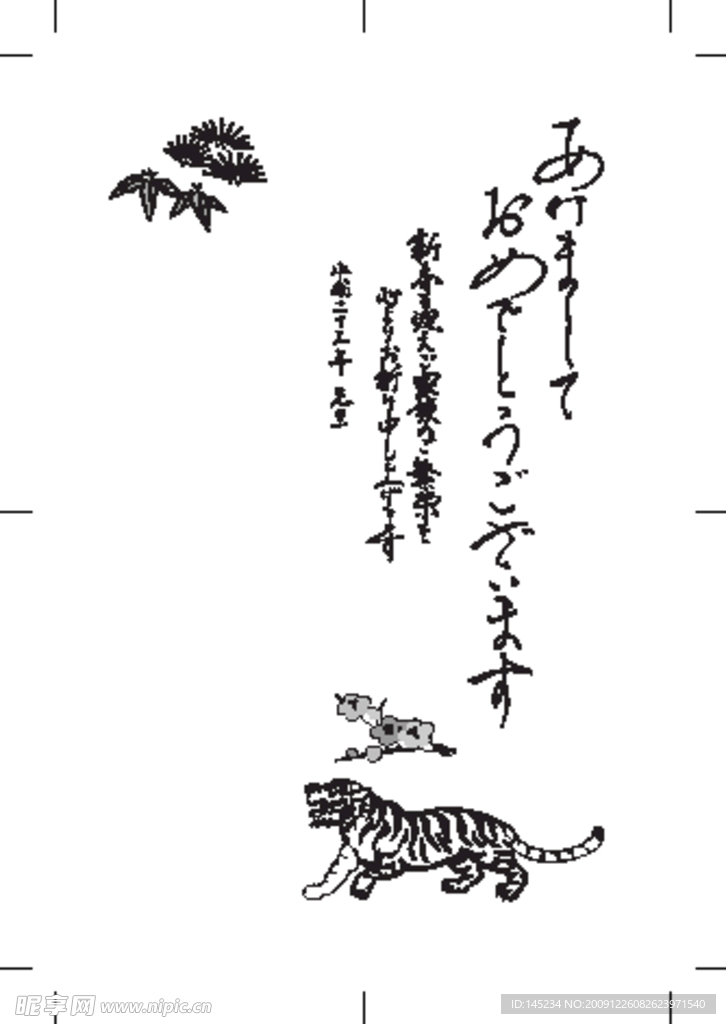 あけまして
おめでとうございます
新春を迎えご家族のご繁栄を
心よりお祈り申し上げます
平成二十二年 元旦
昵享网 www.nipic.cn
ID:145234 NO:20091226082623971540